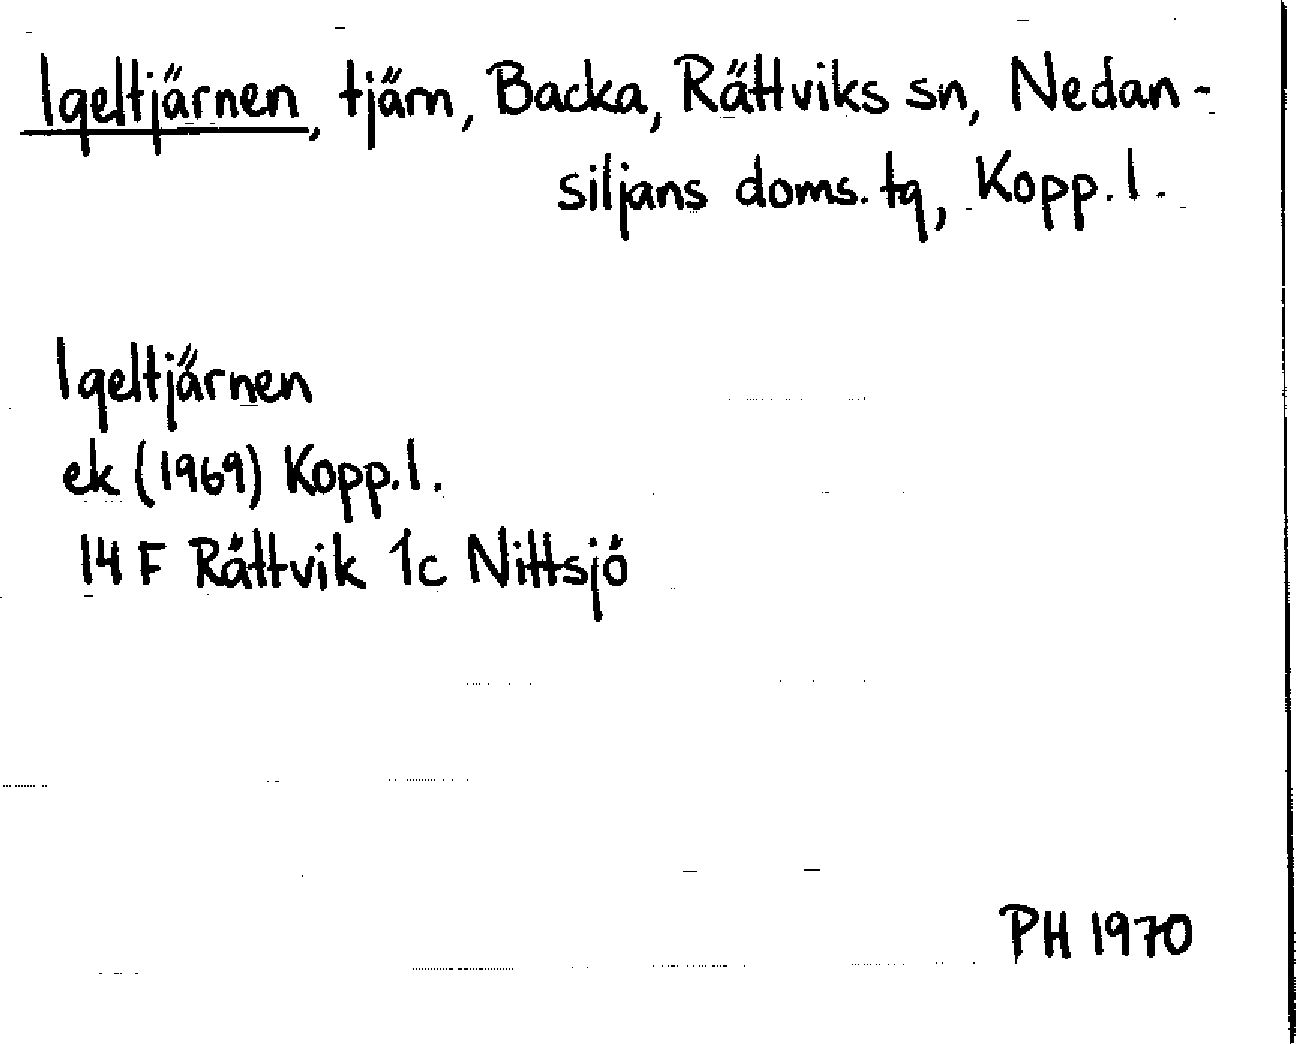 Igeltjärnen, tjärn, Backa, Rättviks sn, Nedan-
siljans doms. tg, Kopp. l.
Igeltjärnen
ek (1969) Kopp. l.
14 F Rättvik 1c Nittsjö
PH 1970